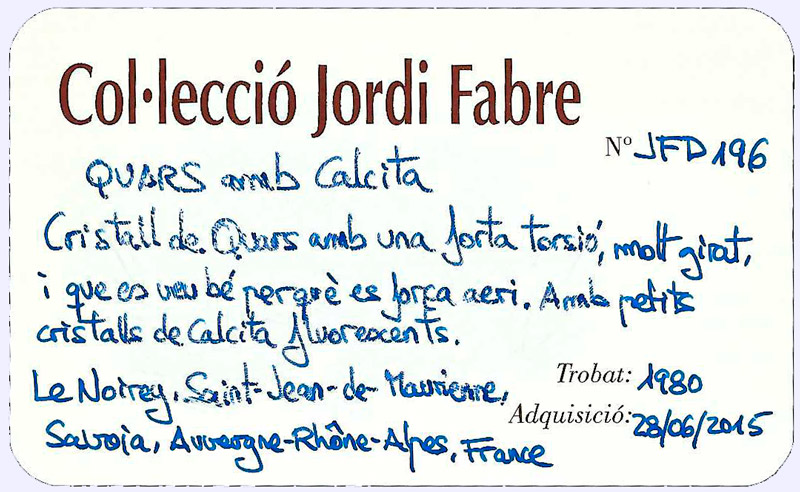 Col·lecció Jordi Fabre
Nº JFD196
QUARS amb Calcita
Cristall de Quars amb una forta torsió, molt girat,
i que es veu bé perquè es força aeri. Amb petits
cristalls de Calcita fluorescents.
Le Noirey, Saint-Jean-de-Maurienne,
Trobat: 1980
Savoia, Auvergne-Rhône-Alpes, France
Adquisició: 28/06/2015